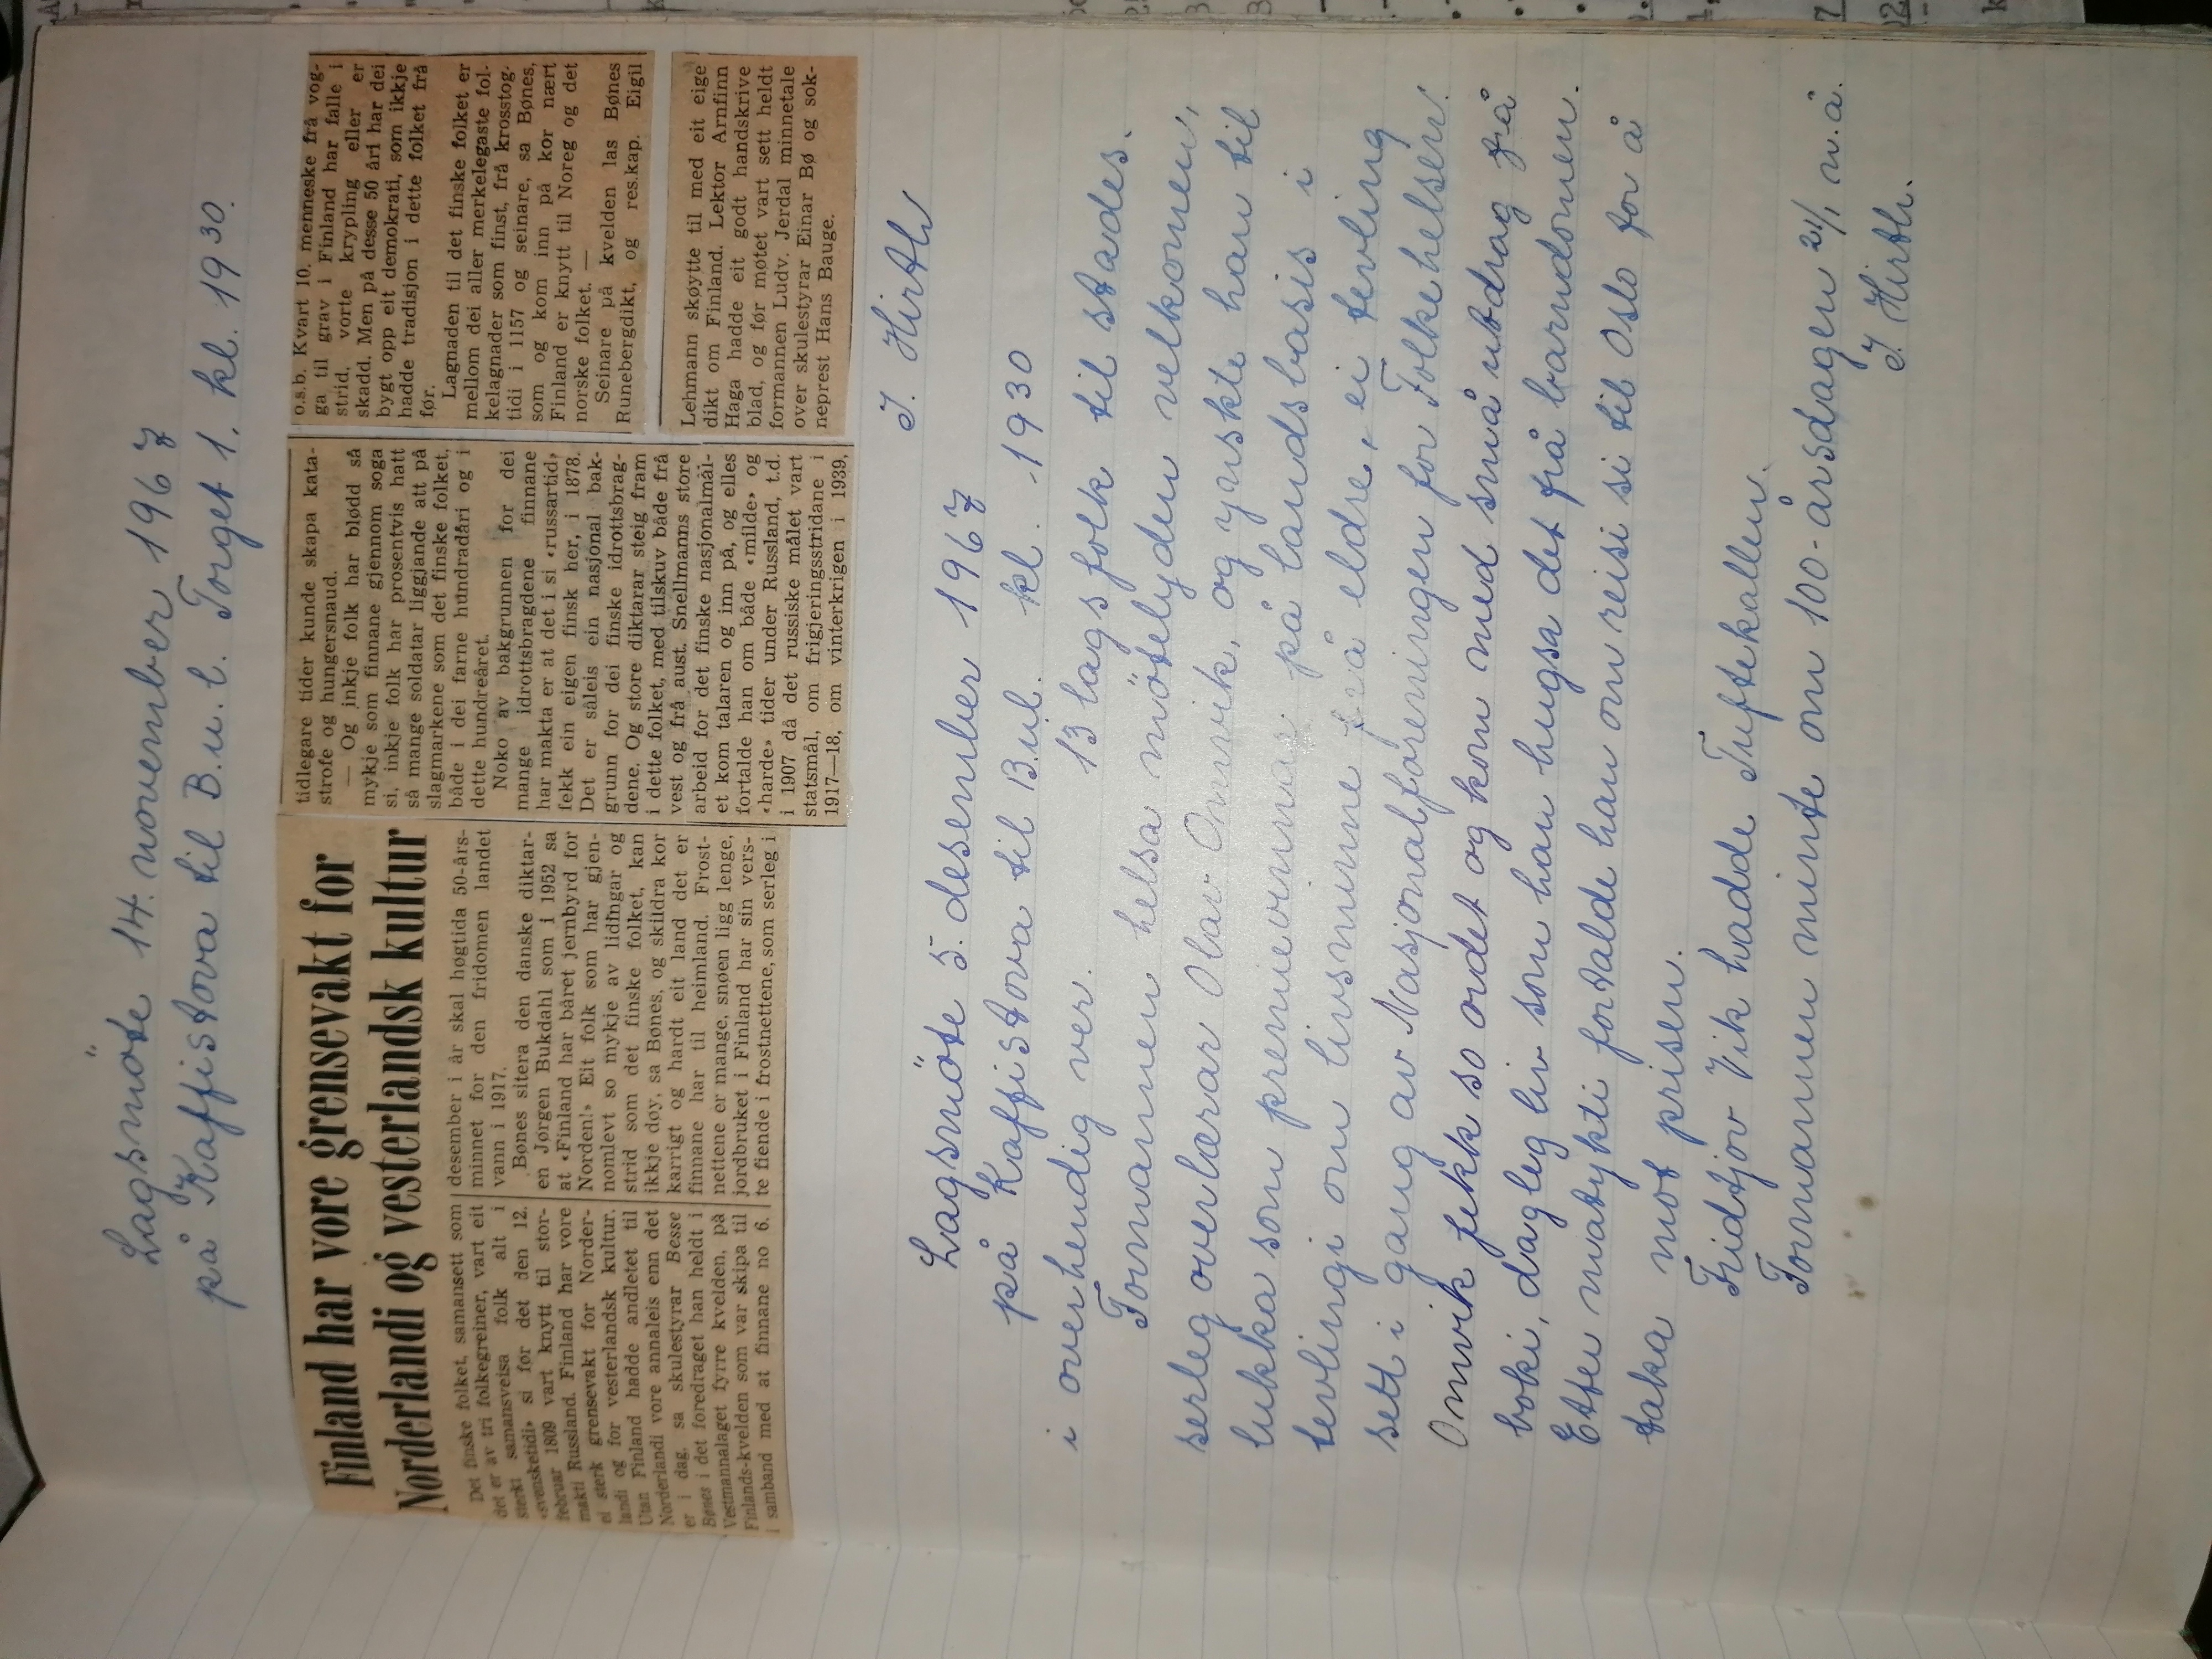 Lagsmöte 14. november 1967
på Kaffistova til B.u.l. Torget 1. kl. 19 30.
Finland har vore grensevakt for
Norderlandi og vesterlandsk kultur
Det finske folket, samansett som
det er av tri folkegreiner, vart eit
sterkt samansveisa folk alt i
«svensketidi» si før det den 12.
februar 1809 vart knytt til stor-
makti Russland. Finland har vore
ei sterk grensevakt for Norder-
landi og for vesterlandsk kultur.
Utan Finland hadde andletet til
Norderlandi vore annaleis enn det
er i dag, sa skulestyrar Besse
Bønes i det foredraget han heldt i
Vestmannalaget fyrre kvelden, på
Finlands-kvelden som var skipa til
i samband med at finnane no 6.
desember i år skal høgtida 50-års-
minnet for den fridomen landet
vann i 1917.
Bønes sitera den danske diktar-
en Jørgen Bukdahl som i 1952 sa
at «Finland har båret jernbyrd for
Norden!» Eit folk som har gjen-
nomlevt so mykje av lidingar og
strid som det finske folket, kan
ikkje døy, sa Bønes, og skildra kor
karrigt og hardt eit land det er
finnane har til heimland. Frost-
nettene er mange, snøen ligg lenge,
jordbruket i Finland har sin vers-
te fiende i frostnettene, som serleg i
tidlegare tider kunde skapa kata-
strofe og hungersnaud.
— Og inkje folk har blødd så
mykje som finnane gjennom soga
si, inkje folk har prosentvis hatt
så mange soldatar liggjande att på
slagmarkene som det finske folket,
både i dei farne hundradåri og i
dette hundreåret.
Noko av bakgrunnen for dei
mange idrottsbragdene finnane
har makta er at det i si «russartid»
fekk ein eigen finsk her, i 1878.
Det er såleis ein nasjonal bak-
grunn for dei finske idrottsbrag-
dene. Og store diktarar steig fram
i dette folket, med tilskuv både frå
vest og frå aust. Snellmanns store
arbeid for det finske nasjonalmål-
et kom talaren og inn på, og elles
fortalde han om både «milde» og
«harde» tider under Russland, t.d.
i 1907 då det russiske målet vart
statsmål, om frigjeringsstridane i
1917—18, om vinterkrigen i 1939,
o.s.b. Kvart 10. menneske frå vog-
ga til grav i Finland har falle i
strid, vorte krypling eller er
skadd. Men på desse 50 åri har dei
bygt opp eit demokrati, som ikkje
hadde tradisjon i dette folket frå
før.
Lagnaden til det finske folket er
mellom dei aller merkelegaste fol-
kelagnader som finst, frå krosstog-
tidi i 1157 og seinare, sa Bønes,
som og kom inn på kor nært
Finland er knytt til Noreg og det
norske folket. —
Seinare på kvelden las Bønes
Runebergdikt, og res.kap. Eigil
Lehmann skøytte til med eit eige
dikt om Finland. Lektor Arnfinn
Haga hadde eit godt handskrive
blad, og før møtet vart sett heldt
formannen Ludv. Jerdal minnetale
over skulestyrar Einar Bø og sok-
neprest Hans Bauge.
I. Hirth
Lagsmöte 5. desember 1967
på Kaffistova til B.ul. kl. 1930
i overhendig ver. 13 lagsfolk til stades.
Formannen helsa mötelyden velkomen,
serleg overlærar Olav Omvik, og ynskte han til
lukka som premievinnar på landsbasis i
tevlingi om livsminne frå eldre, ei tevling
sett i gang av Nasjonalforeningen for Folkehelsen.
Omvik fekk so ordet og kom med små utdrag frå
boki, dagleg liv som han hugsa det frå barndomen.
Etter matykti fortalde han om reisi si til Oslo for å
taka mot prisen.
Fridtjov Vik hadde Tuftekallen.
Formannen minte om 100-årsdagen 21/1 n.å.
I. Hirth.